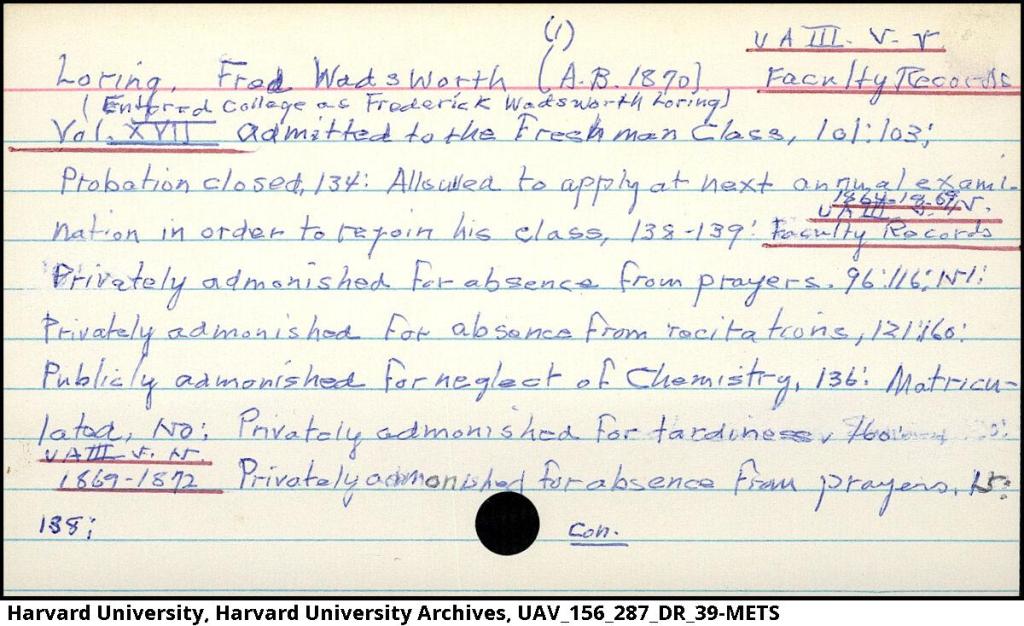 (1)
UA III. V. V
Loring, Fred Wadsworth (A.B. 1870). Faculty Records
(Entered College as Frederick Wadsworth Loring)
Vol. XVII admitted to the Freshman Class, 101:103;
Probation closed, 134: Allowed to apply at next annual exami-
1864-1869
UA III 5. V.
nation in order to rejoin his class, 138-139: Faculty Records
Privately admonished for absence from prayers. 96:116;
Privately admonished for absence from recitations, 121:160:
Publicly admonished for neglect of Chemistry, 136: Matricu-
lated, No: Privately admonished for tardiness, 160:
UA III 5. V.
1869-1872 Privately admonished for absence from prayers, 15:
138; Con.
Harvard University, Harvard University Archives, UAV_156_287_DR_39-METS